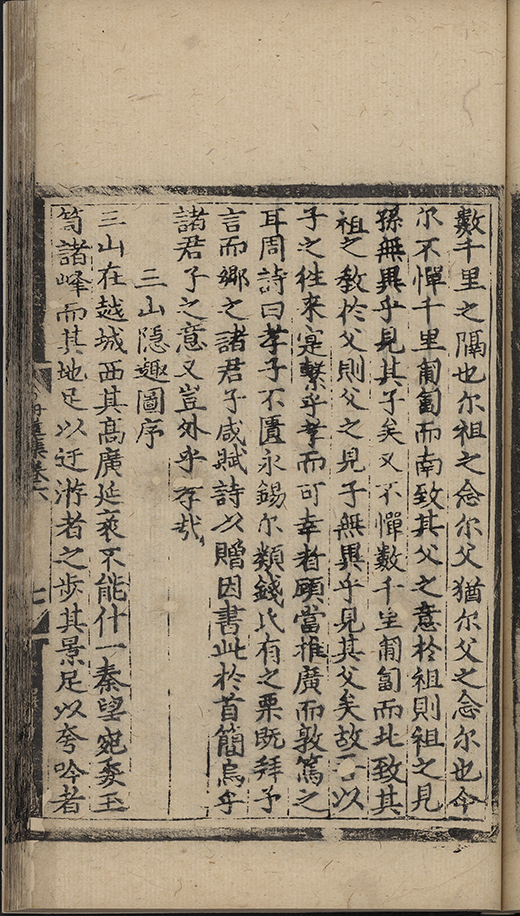 數千里之隔也尔祖之念尔父猶尔父之念尔也今
尔不憚千里匍匐而南致其父之意於祖則祖之見
孫無異乎見其子矣又不憚數千里匍匐而北致其
祖之教於父則父之見子無異乎見其父矣故以
子之往來寔繫乎孝而可幸者顧當推廣而敦篤之
耳周詩曰孝子不匱永錫尔類錢氏有之栗既拜予
言而鄉之諸君子咸賦詩以贈因書此於首簡烏乎
諸君子之意又豈外乎孝哉
三山隱趣圖序
三山在越城西其高廣延袤不能什一秦望宛委玉
笥諸峰而其地足以迂游者之步其景足以夸吟者
丹崖集卷六
七